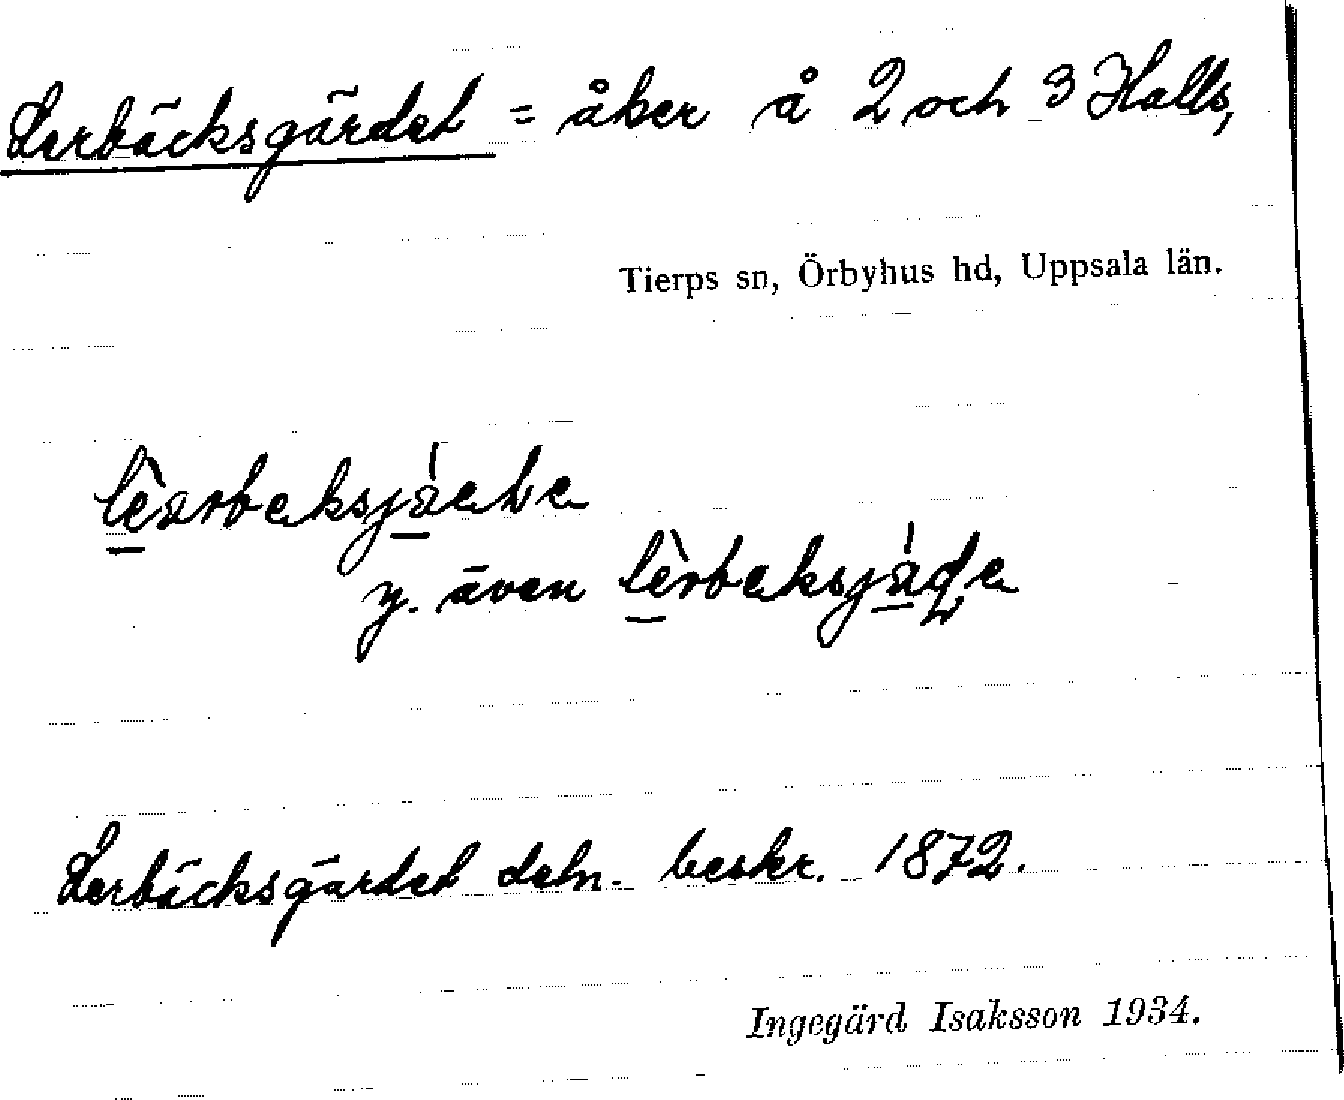 Lerbäcksgärdet = åker å 2 och 3 Halls,
Tierps sn, Örbyhus hd, Uppsala län.
y. även
Lerbäcksgärdet deln. beskr. 1872.
Ingegärd Isaksson 1934.